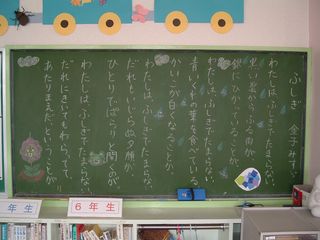 ふしぎ 金子みすゞ
わたしはふしぎでたまらない、
黒い雲からふる雨が、
銀にひかっていることが。
わたしはふしぎでたまらない、
青いくわの葉を食べている、
かいこが白くなることが。
わたしはふしぎでたまらない、
だれもいじらぬ夕顔が、
ひとりでぱらりと開くのが。
わたしはふしぎでたまらない、
だれにきいてもわらってて、
あたりまえだ、ということが。
年生
6年生